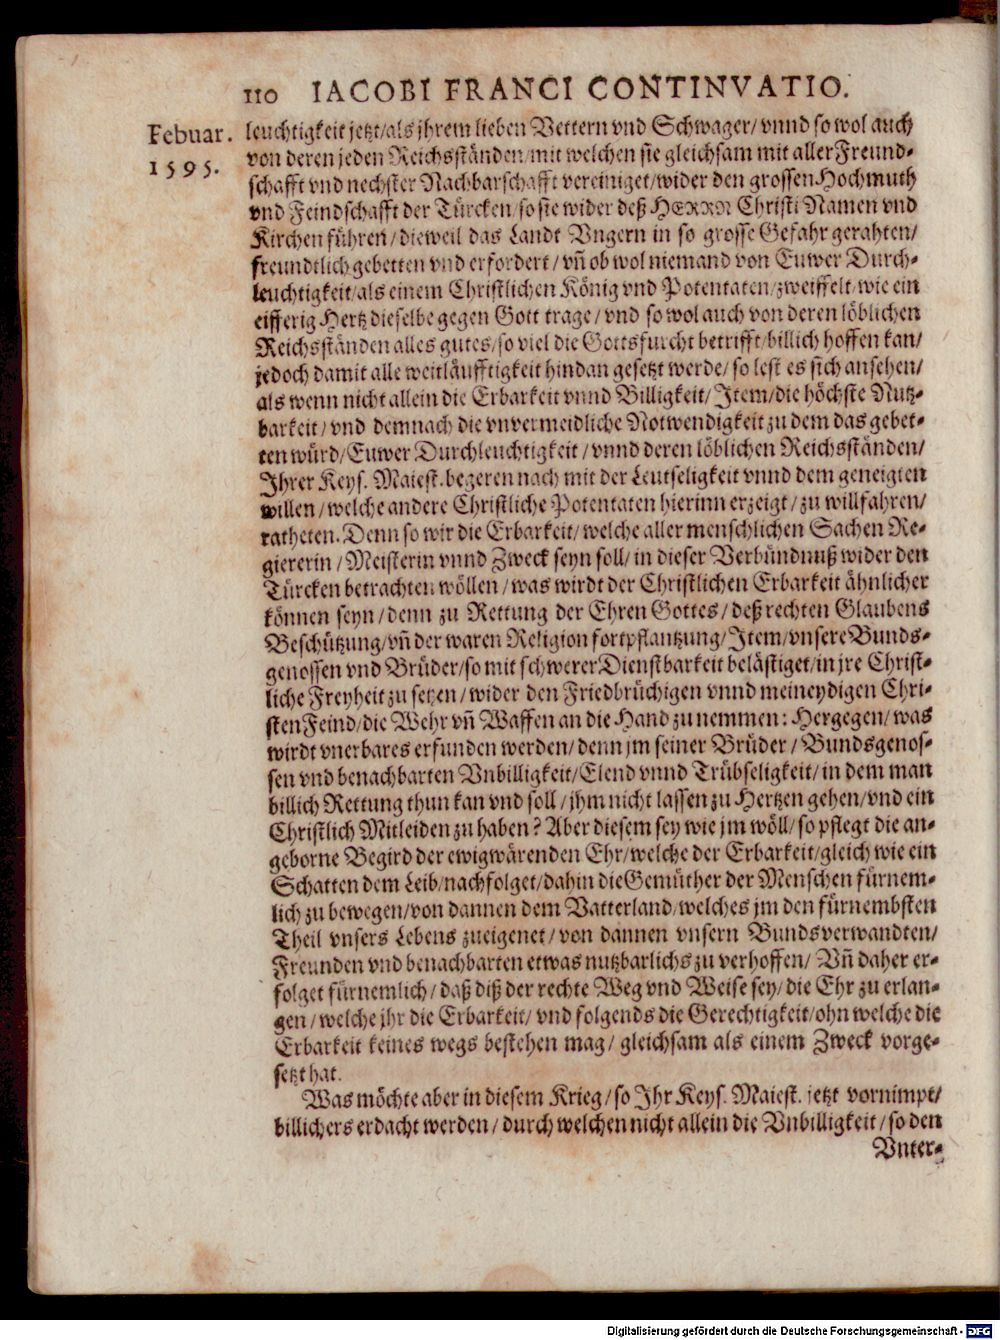 110 IACOBI FRANCI CONTINVATIO.
Febuar.
1595.
leuchtigkeit jetzt/als jhrem lieben Vettern vnd Schwager/vnnd so wol auch
von deren jeden Reichsständen/mit welchen sie gleichsam mit aller Freund-
schafft vnd nechster Nachbarschafft vereiniget/wider den grossen Hochmuth
vnd Feindschafft der Türcken/so sie wider deß HERRN Christi Namen vnd
Kirchen führen/dieweil das Landt Vngern in so grosse Gefahr gerahten/
freundtlich gebetten vnd erfordert/vñ ob wol niemand von Euwer Durch-
leuchtigkeit/als einem Christlichen König vnd Potentaten/zweiffelt/wie ein
eifferig Hertz dieselbe gegen Gott trage/vnd so wol auch von deren löblichen
Reichsständen alles gutes/so viel die Gottsfurcht betrifft/billich hoffen kan/
jedoch damit alle weitläufftigkeit hindan gesetzt werde/so lest es sich ansehen/
als wenn nicht allein die Erbarkeit vnnd Billigkeit/Item/die höchste Nutz-
barkeit/vnd demnach die vnvermeidliche Notwendigkeit zu dem das gebet-
ten würd/Euwer Durchleuchtigkeit/vnnd deren löblichen Reichsständen/
Ihrer Keys. Maiest. begeren nach mit der Leutseligkeit vnnd dem geneigten
willen/welche andere Christliche Potentaten hierinn erzeigt/zu willfahren/
ratheten. Denn so wir die Erbarkeit/welche aller menschlichen Sachen Re-
giererin/Meisterin vnnd Zweck seyn soll/in dieser Verbündnuß wider den
Türcken betrachten wöllen/was wirdt der Christlichen Erbarkeit ähnlicher
können seyn/denn zu Rettung der Ehren Gottes/deß rechten Glaubens
Beschützung/vñ der waren Religion fortpflantzung/Item/vnsere Bunds-
genossen vnd Brüder/so mit schwerer Dienstbarkeit belästiget/in jre Christ-
liche Freyheit zu setzen/wider den Friedbrüchigen vnnd meineydigen Chri-
sten Feind/die Wehr vñ Waffen an die Hand zu nemmen: Hergegen/was
wirdt vnerbares erfunden werden/denn jm seiner Brüder/Bundsgenos-
sen vnd benachbarten Vnbilligkeit/Elend vnnd Trübseligkeit/in dem man
billich Rettung thun kan vnd soll/jhm nicht lassen zu Hertzen gehen/vnd ein
Christlich Mitleiden zu haben? Aber diesem sey wie jm wöll/so pflegt die an-
geborne Begird der ewigwärenden Ehr/welche der Erbarkeit/gleich wie ein
Schatten dem Leib/nachfolget/dahin die Gemüther der Menschen fürnem-
lich zu bewegen/von dannen dem Vatterland/welches jm den fürnembsten
Theil vnsers Lebens zueigenet/von dannen vnsern Bundsverwandten/
Freunden vnd benachbarten etwas nutzbarlichs zu verhoffen/Vñ daher er-
folget fürnemlich/daß diß der rechte Weg vnd Weise sey/die Ehr zu erlan-
gen/welche jhr die Erbarkeit/vnd folgends die Gerechtigkeit/ohn welche die
Erbarkeit keines wegs bestehen mag/gleichsam als einem Zweck vorge-
setzt hat.
Was möchte aber in diesem Krieg/so Ihr Keys. Maiest. jetzt vornimpt/
billichers erdacht werden/durch welchen nicht allein die Vnbilligkeit/so den
Vnter-
Digitalisierung gefördert durch die Deutsche Forschungsgemeinschaft - DFG